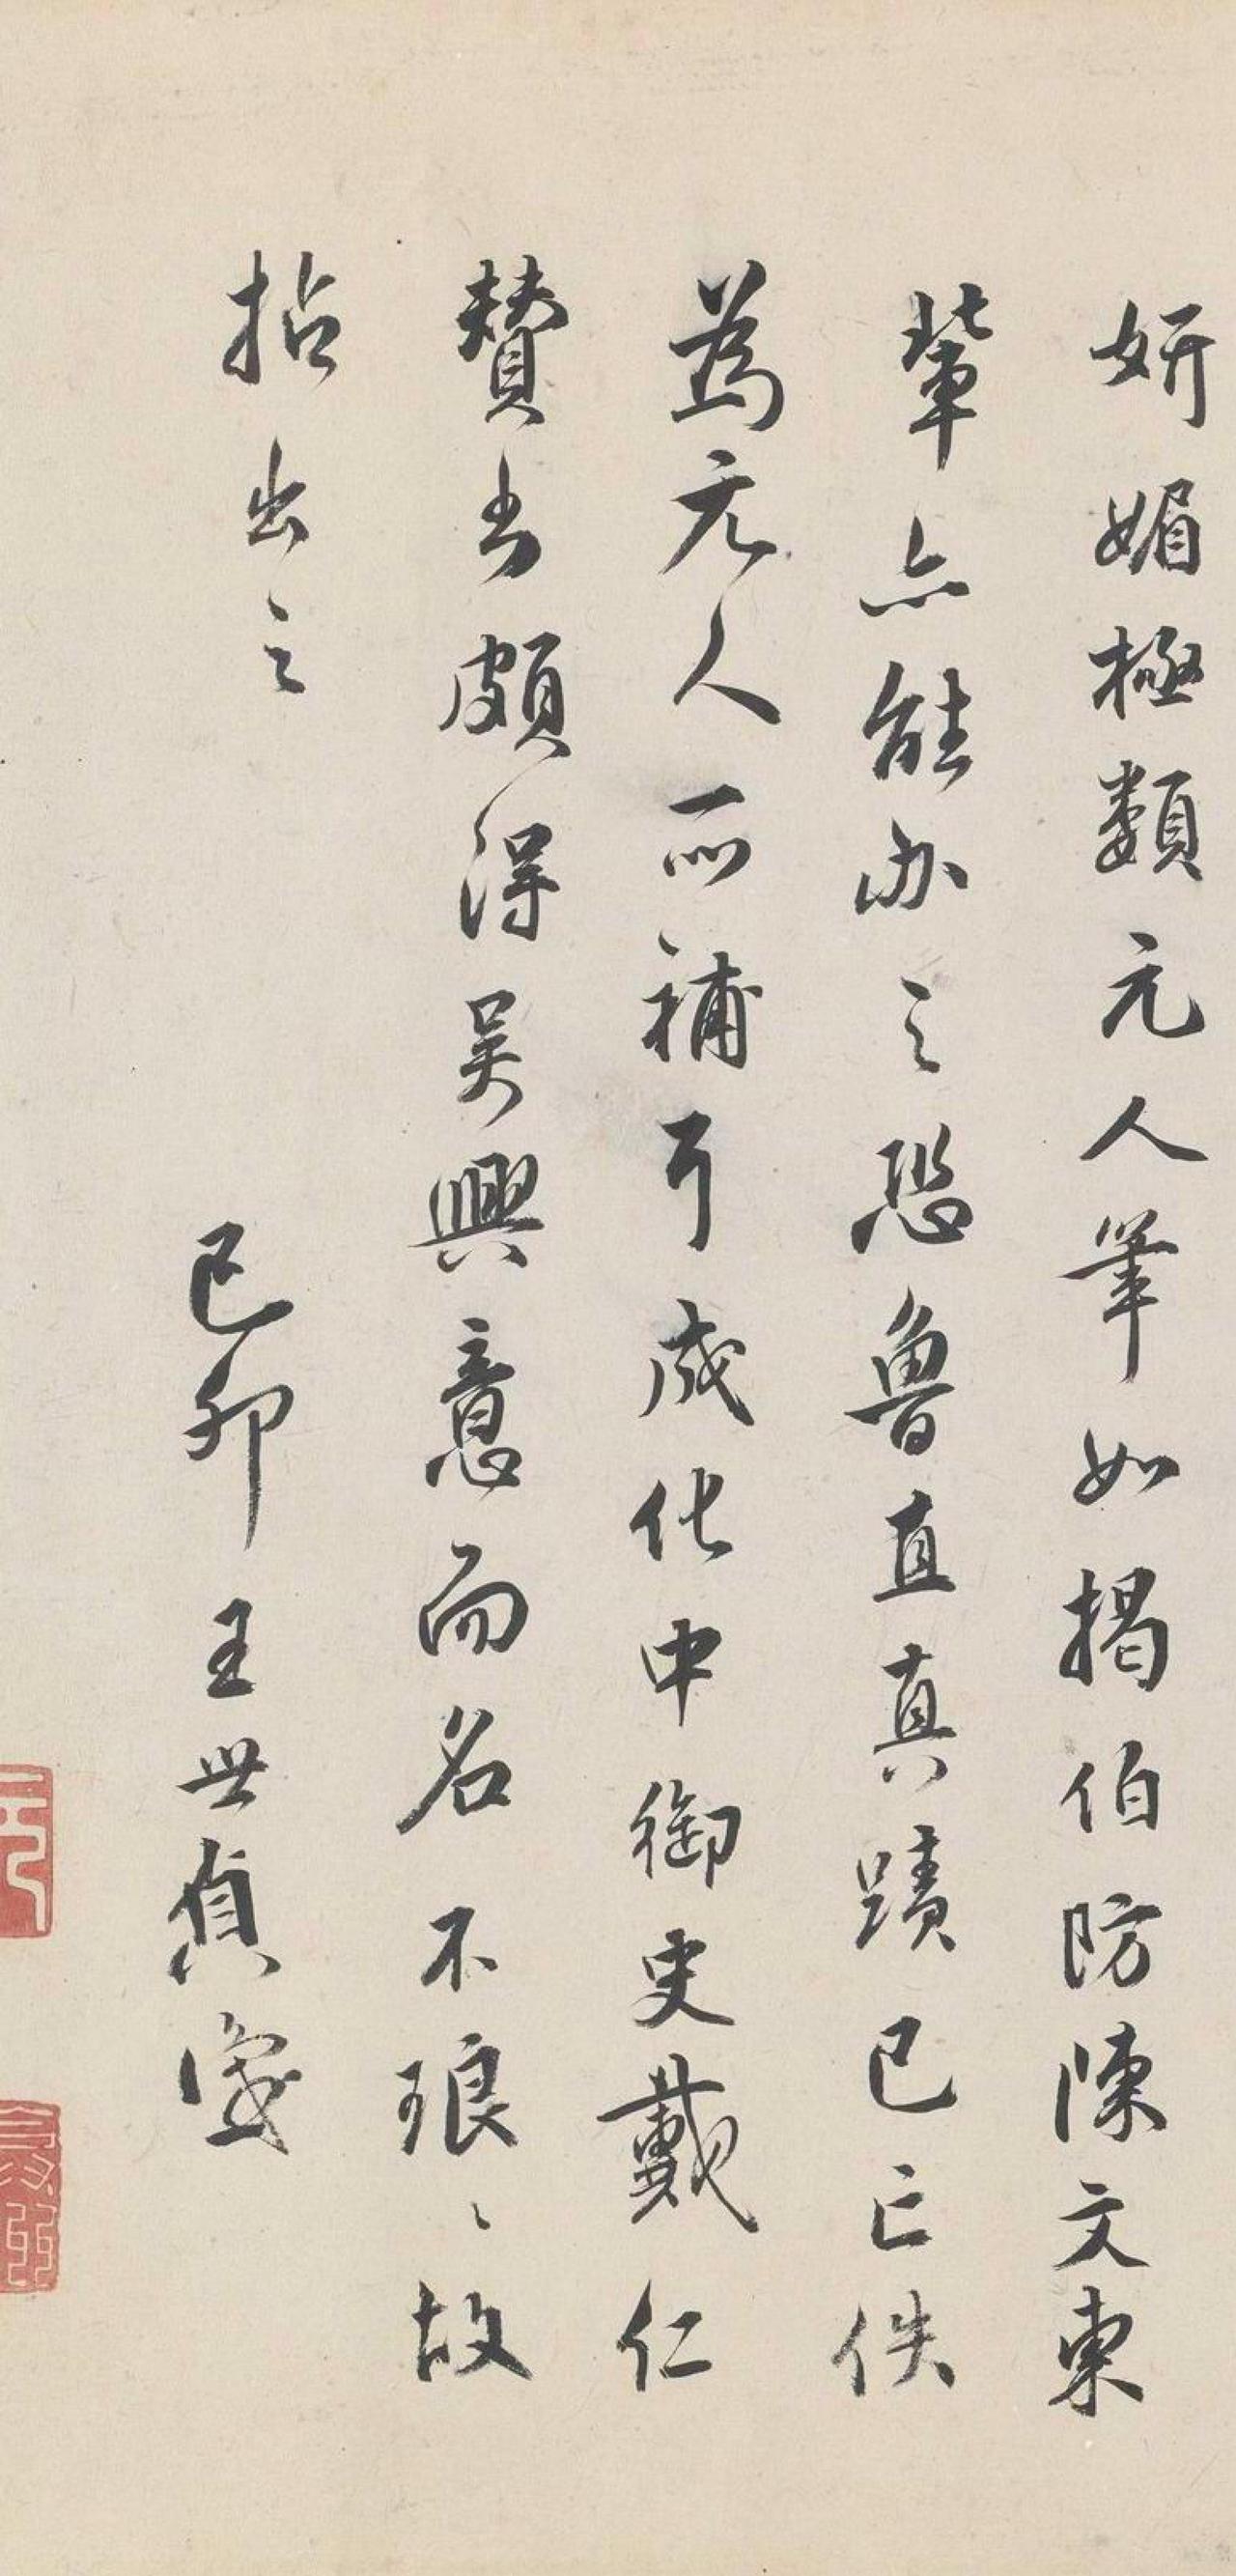 妍媚極類元人筆如揭伯防陳文東
輩亦能办之恐魯直真蹟已亡佚
為元人所補耳成化中御史戴仁
賛書頗得吴興意而名不琅〻故
拈出之
己卯王世貞